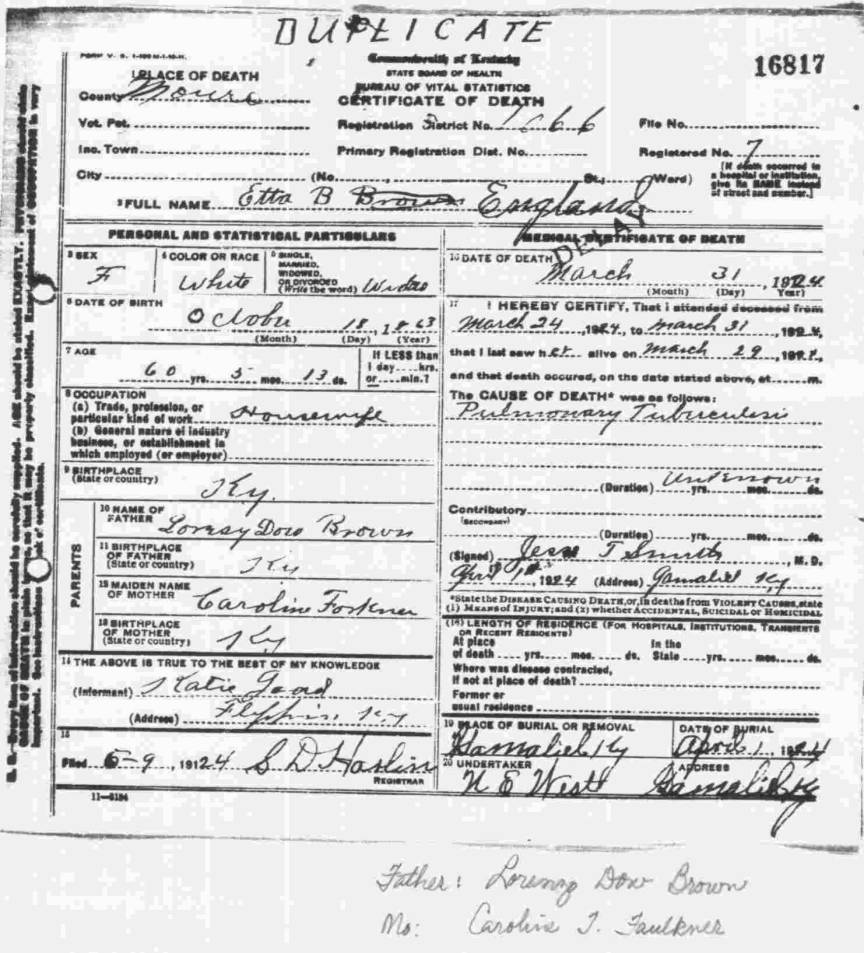 DUPLICATE
FORM V. S. 1-
Commonwealth of Kentucky
STATE BOARD OF HEALTH
BUREAU OF VITAL STATISTICS
CERTIFICATE OF DEATH
16817
1 PLACE OF DEATH
County Monroe
Vot. Pct. Registration District No. 1066 File No.
Inc. Town Primary Registration Dist. No. Registered No. 7
City (No. , St.; Ward)
[If death occurred in
a hospital or institution,
give its NAME instead
of street and number.]
2 FULL NAME Etta B Brown England
DELAY
PERSONAL AND STATISTICAL PARTICULARS
3 SEX F
4 COLOR OR RACE White
5 SINGLE,
MARRIED,
WIDOWED,
OR DIVORCED
(Write the word) Widow
6 DATE OF BIRTH
October 18, 1863
(Month) (Day) (Year)
7 AGE
60 yrs. 5 mos. 13 ds.
If LESS than
1 day....hrs.
or....min.?
8 OCCUPATION
(a) Trade, profession, or
particular kind of work Housewife
(b) General nature of industry
business, or establishment in
which employed (or employer)
9 BIRTHPLACE
(State or country) Ky.
PARENTS
10 NAME OF
FATHER Dow Brown
11 BIRTHPLACE
OF FATHER
(State or country) Ky
12 MAIDEN NAME
OF MOTHER Carolin Forkner
13 BIRTHPLACE
OF MOTHER
(State or country) Ky
14 THE ABOVE IS TRUE TO THE BEST OF MY KNOWLEDGE
(Informant) Katie
(Address) Flippin Ky
15
Filed 5-9, 19124 S D
REGISTRAR
11—3184
MEDICAL CERTIFICATE OF DEATH
16 DATE OF DEATH
March 31, 1924
(Month) (Day) Year)
17 I HEREBY CERTIFY, That I attended deceased from
March 24, 1924, to March 31, 1924,
that I last saw her alive on March 29, 192
and that death occured, on the date stated above, at m.
The CAUSE OF DEATH* was as follows:
Pulmonary
Unknown
(Duration) yrs. mos. ds.
Contributory
(SECONDARY)
(Duration) yrs. mos. ds.
(Signed) Jesse T , M. D.
April 1st, 1924 (Address) Gamaliel Ky
*State the DISEASE CAUSING DEATH, or, in deaths from VIOLENT CAUSES, state
(1) MEANS OF INJURY; and (2) whether ACCIDENTAL, SUICIDAL or HOMICIDAL
(18) LENGTH OF RESIDENCE (FOR HOSPITALS, INSTITUTIONS, TRANSIENTS
OR RECENT RESIDENTS)
At place In the
of death yrs. mos. ds. State yrs. mos. ds.
Where was disease contracted,
if not at place of death?
Former or
usual residence
19 PLACE OF BURIAL OR REMOVAL DATE OF BURIAL
Gamaliel Ky April 1, 1924
20 UNDERTAKER ADDRESS
N E West Gamaliel Ky
Father: Lorenzo Dow Brown
Mo: Caroline T. Faulkner